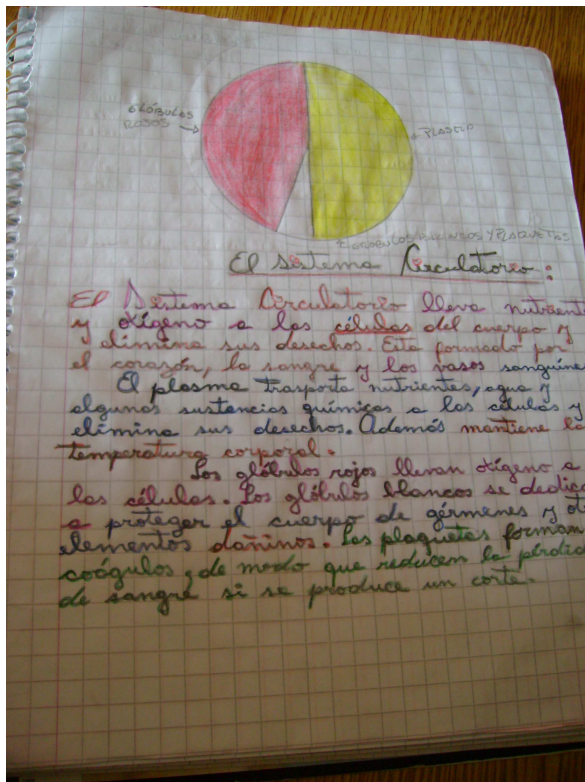 GLÓBULOS
ROJOS
PLASMA
GLÓBULOS BLANCOS Y PLAQUETAS
El Sistema Circulatorio:
El Sistema Circulatorio lleva nutrient
y oxígeno a las células del cuerpo y
elimina sus desechos. Esta formado por
el corazón, la sangre y los vasos sanguíne
El plasma trasporta nutrientes, agua y
algunas sustancias químicas a las células y
elimina sus desechos. Además mantiene la
temperatura corporal.
Los glóbulos rojos llevan oxígeno a
las células. Los glóbulos blancos se dedica
a proteger el cuerpo de gérmenes y ot
elementos dañinos. Las plaquetas forman
coágulos, de modo que reducen la pérdid
de sangre si se produce un corte.